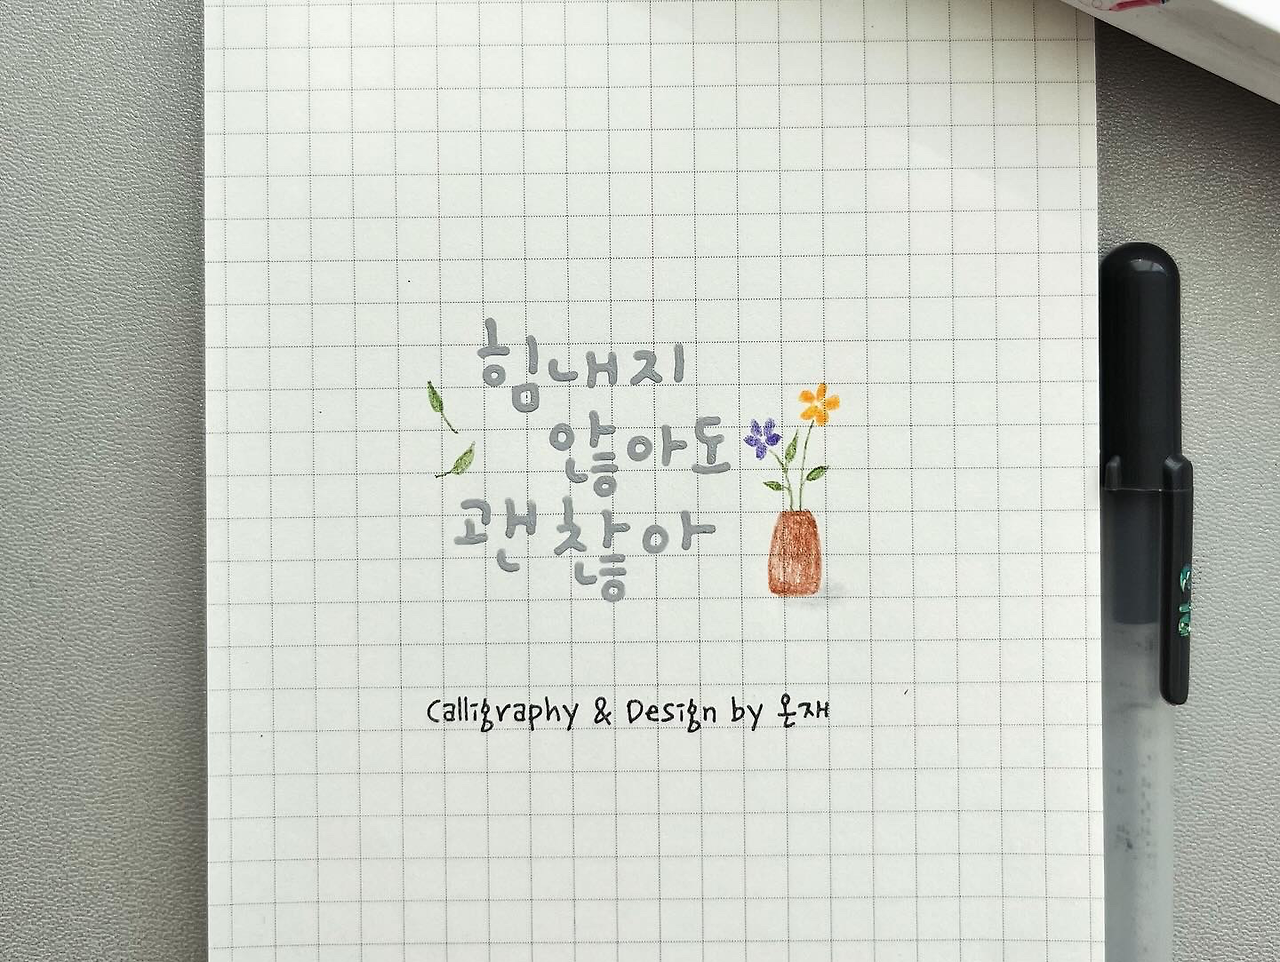 힘내지
않아도
괜찮아
Calligraphy & Design by 온재